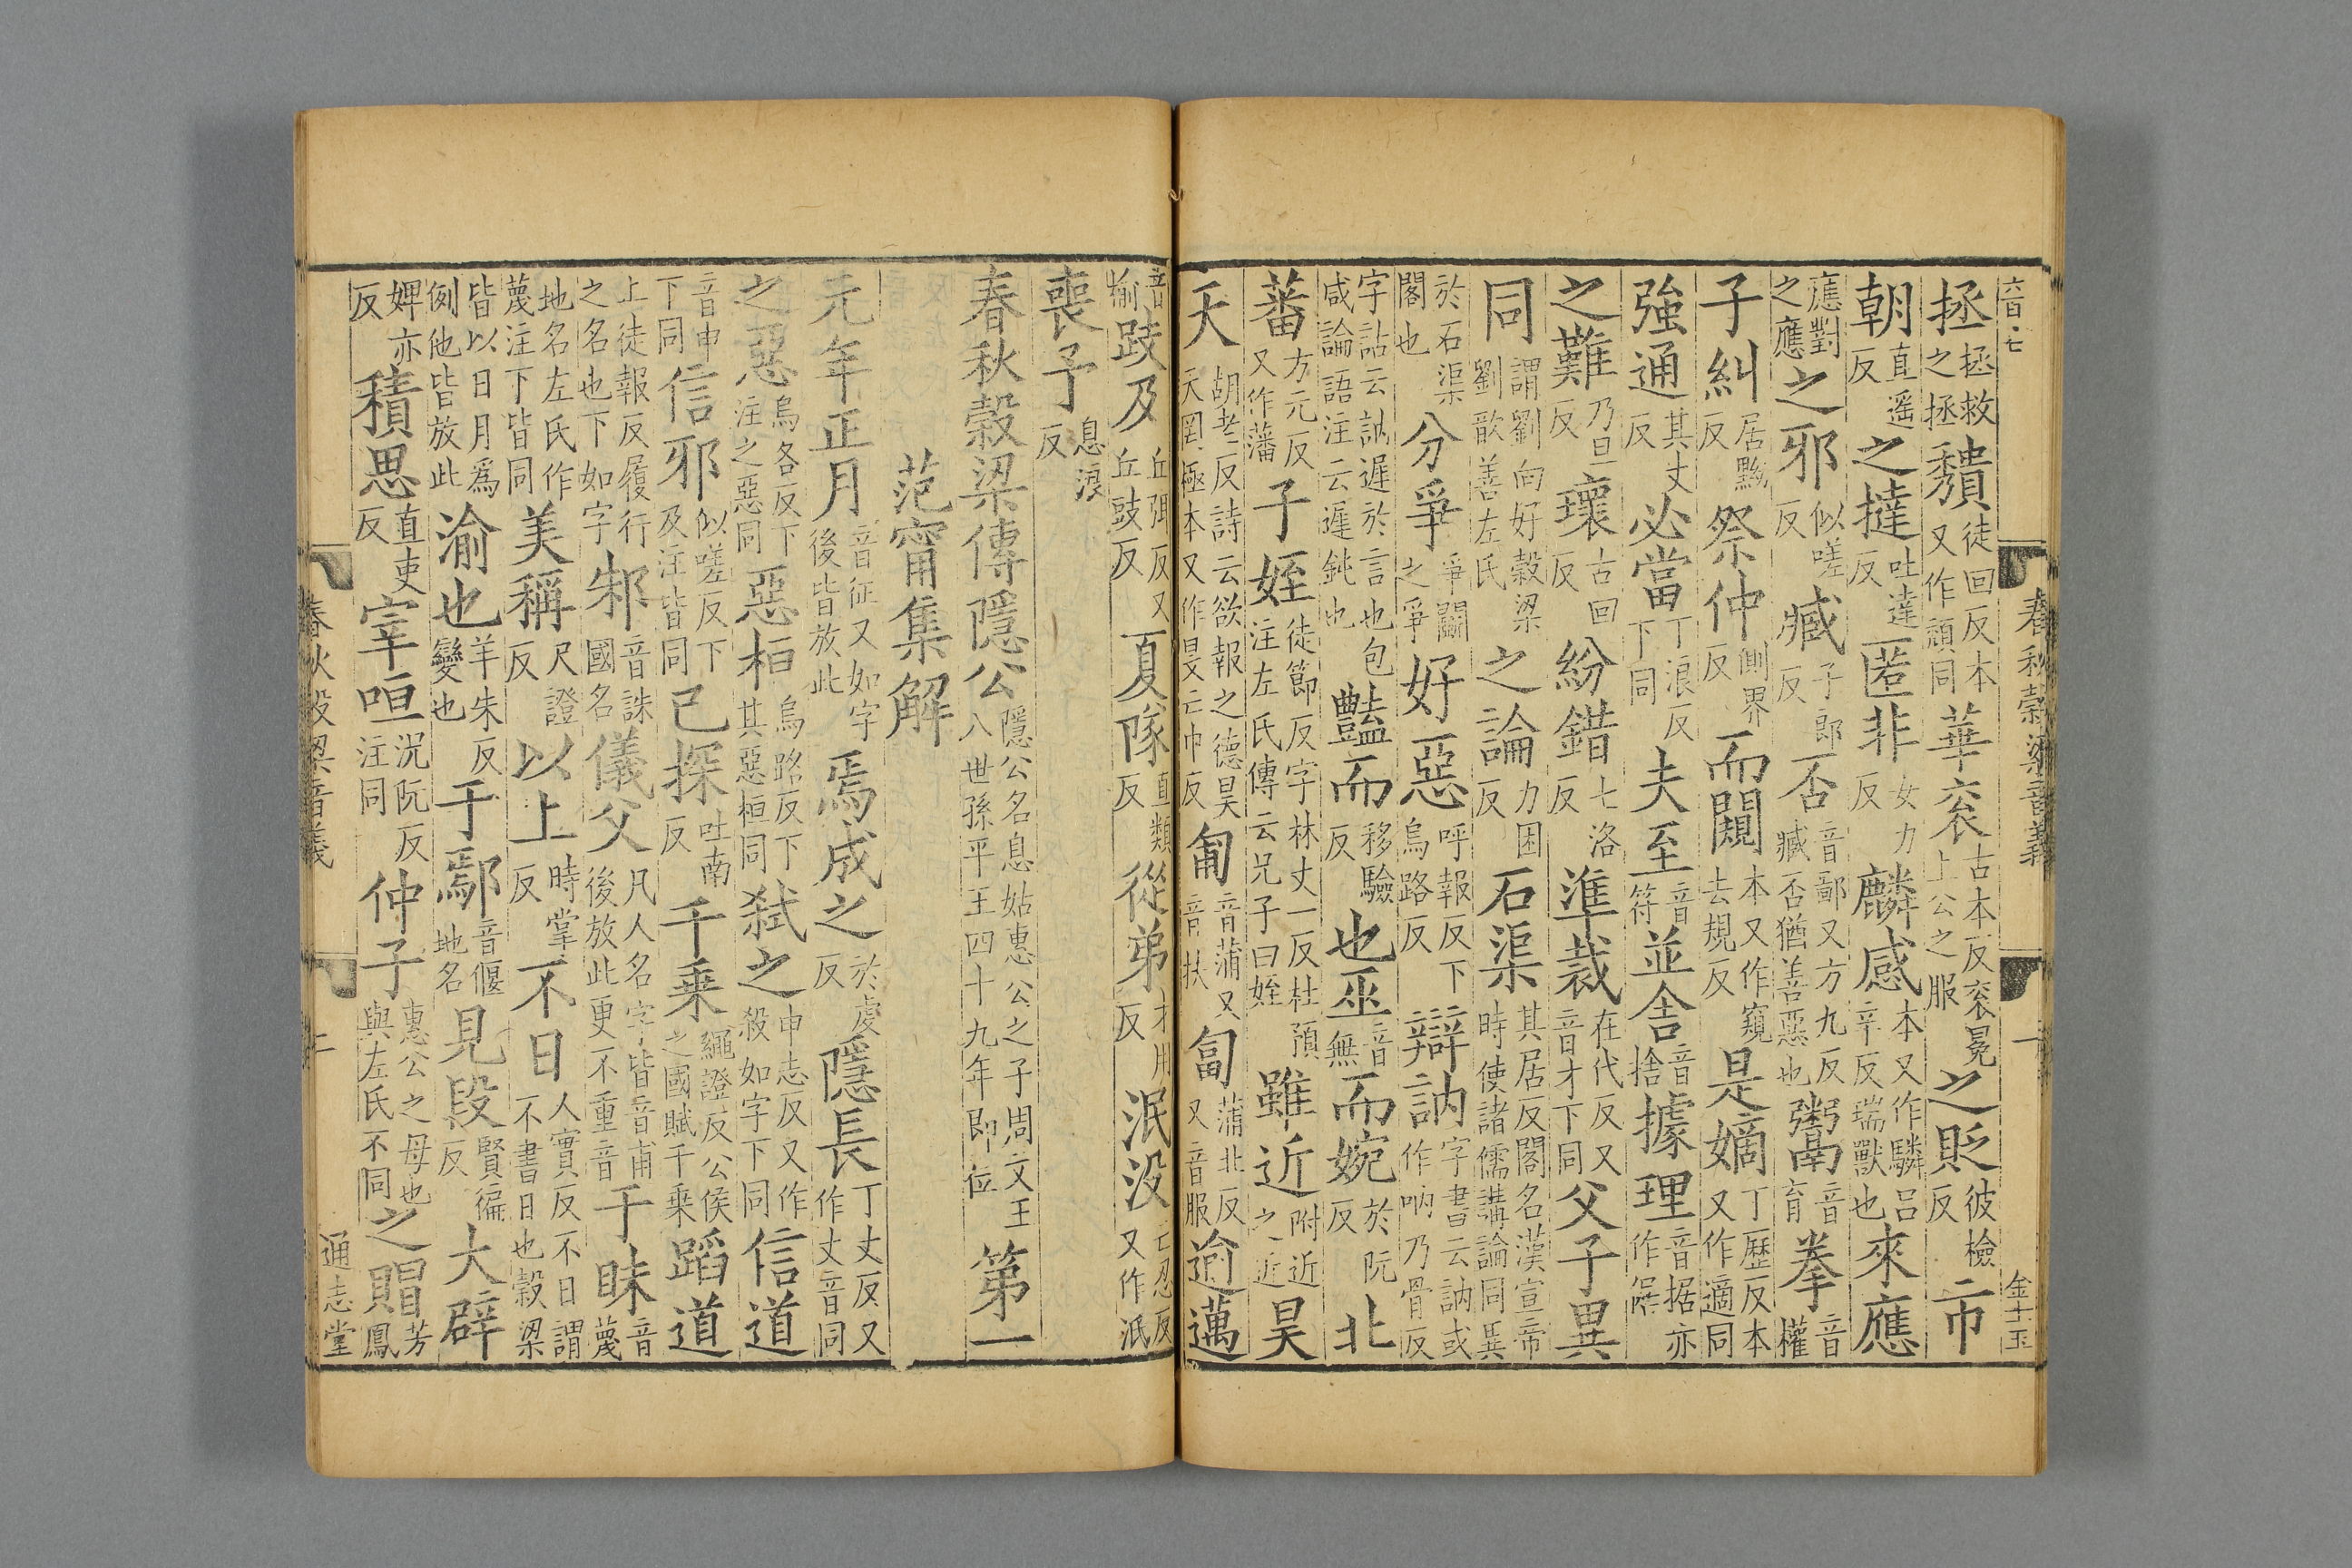 六百·七 春秋穀梁音義 一 金士玉
拯拯救之拯 穨徒回反本又作頹同 華衮古本反衮冕上公之服 之貶彼檢反 一市
朝直遥反 之撻吐達反 匿非女力反 麟感本又作驎吕辛反瑞獸也 來應
應對之應 之邪似嗟反 臧子郎反 否音鄙又方九反臧否猶善惡也 鬻音育 拳音權
子糾居黝反 祭仲側界反 而闚本又作窺去規反 是嫡丁歷反本又作適同
強通其丈反 必當丁浪反下同 夫至音符 並舍音捨 據理音据亦作㨿
之難乃旦反 壞古回反 紛錯七洛反 準裁在代反又音才下同 父子異
同謂劉向好穀梁劉歆善左氏 之論力困反 石渠其居反閣名漢宣帝時使諸儒講論同異
於石渠閣也 分爭爭鬭之爭 好惡呼報反下烏路反 辯訥字書云訥或作吶乃骨反
字詁云訥遲於言也包咸論語注云遲鈍也 豔而移驗反 也巫音無 而婉於阮反 北
蕃方元反又作藩 子姪徒節反字林丈一反杜預注左氏傳云兄子曰姪 雖近附近之近 昊
天胡老反詩云欲報之德昊天罔極本又作旻亡巾反 匍音蒲又音扶 匐蒲北反又音服 逾邁
音榆 跂及丘弭反又丘豉反 夏隊直類反 從弟才用反 泯没亡忍反又作泯
喪予息浪反
春秋穀梁傳隱公隱公名息姑惠公之子周文王八世孫平王四十九年即位 第一
范甯集解
元年正月音征又如字後皆放此 焉成之於虔反 隱長丁丈反又作丈音同
之惡烏各反下注之惡同 惡桓烏路反下其惡桓同 弑之申志反又作殺如字下同 信道
音申下同 信邪似嗟反下及注皆同 已探吐南反 千乗繩證反公侯之國賦千乗 蹈道
上徒報反履行之名也下如字 邾音誅國名 儀父凡人名字皆音甫後放此更不重音 于眛音蔑
地名左氏作蔑注下皆同 美稱尺證反 以上時掌反 不日人實反不日謂不書日也穀梁
皆以日月爲例他皆放此 渝也羊朱反變也 于鄢音偃地名 見段賢徧反 大辟
婢亦反 積思直吏反 宰咺況阮反注同 仲子惠公之母也與左氏不同 之賵芳鳳
春秋穀梁音義 二 通志堂